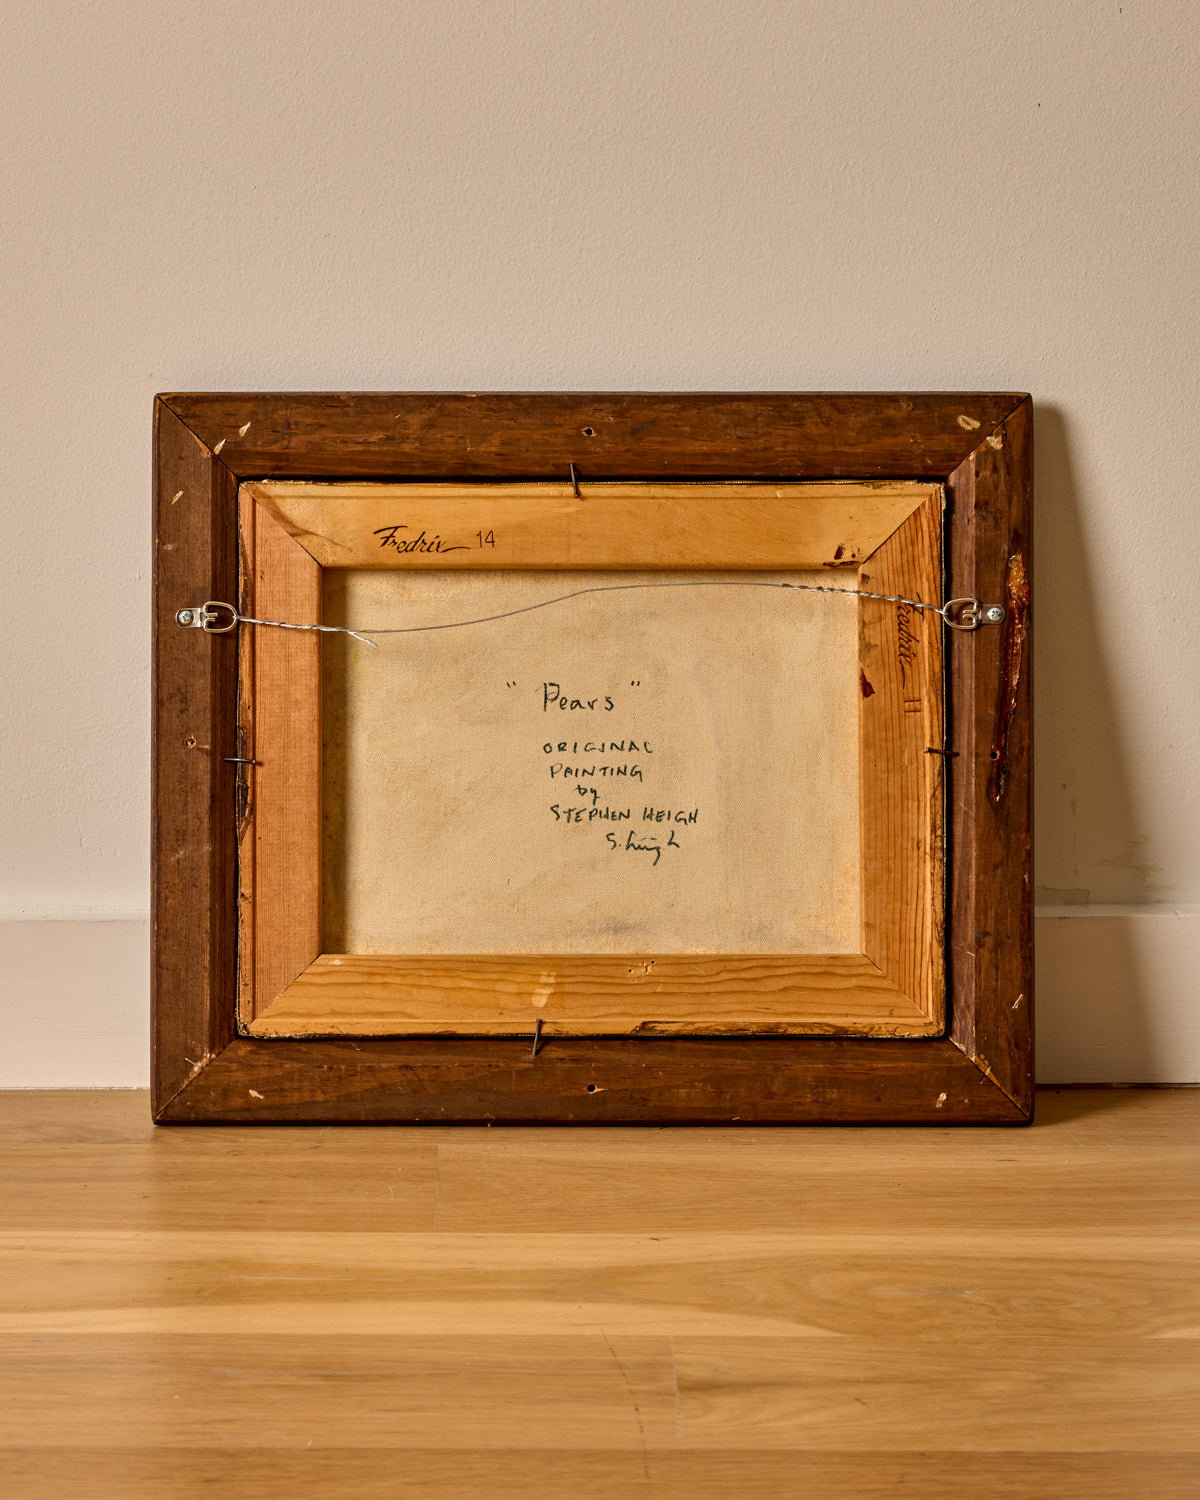 Fredrix 14
Fredrix 11
" Pears "
ORIGINAL
PAINTING
by
STEPHEN HEIGH
S. Heigh